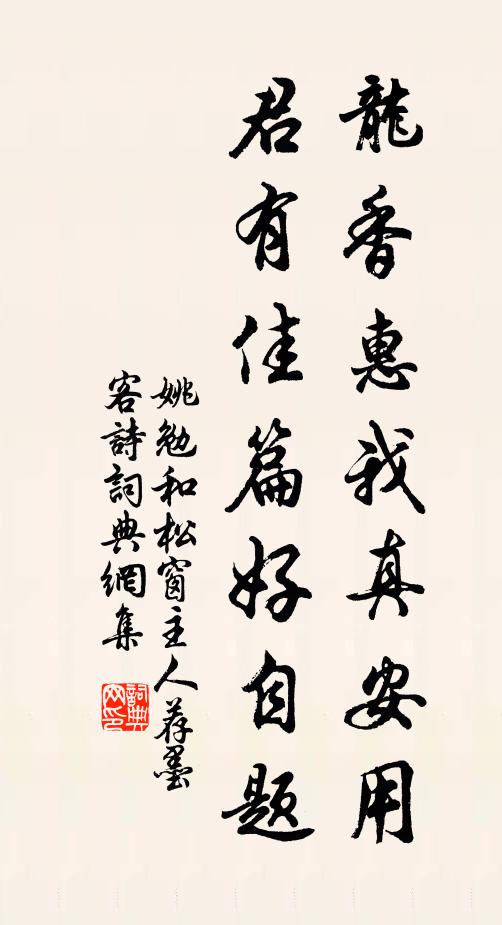 龍香惠我真安用
君有佳篇好自題
姚勉和松窗主人荐墨
客詩詞典網集
詞典网印